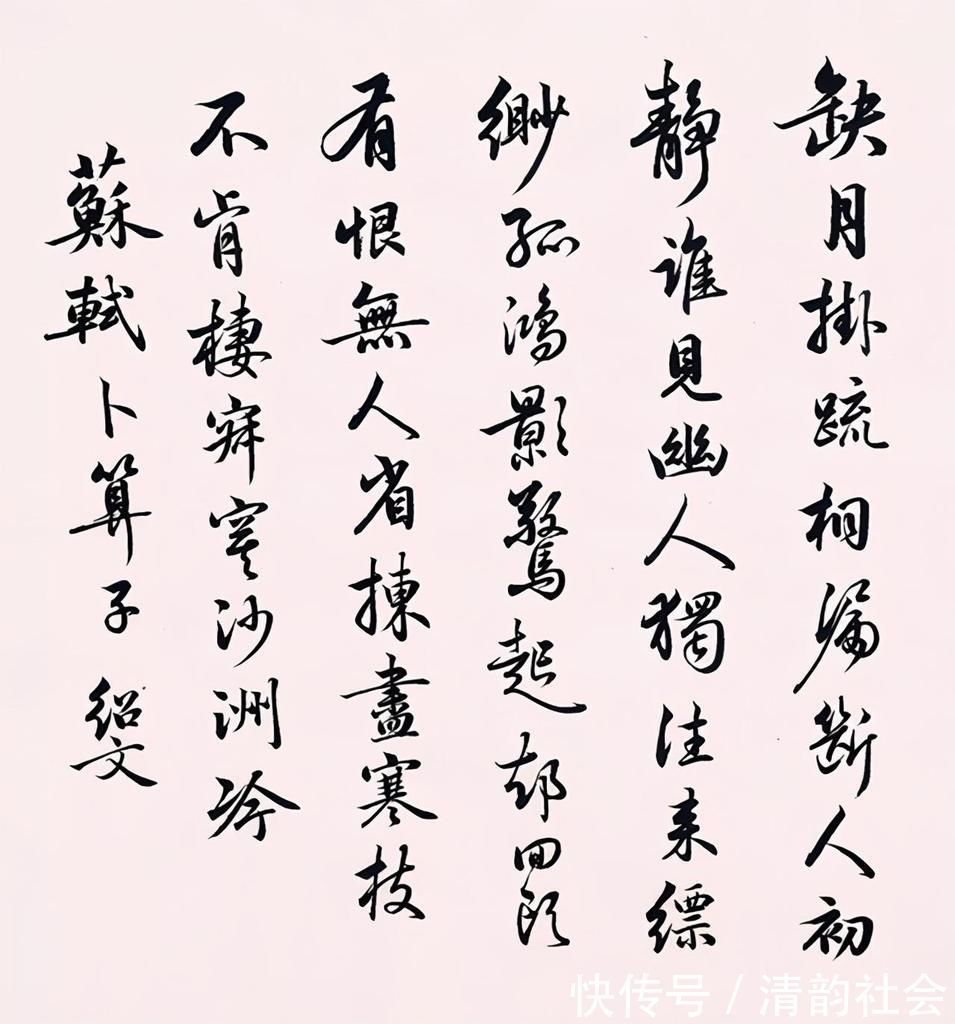 缺月掛疏桐漏斷人初
靜誰見幽人獨往来縹
緲孤鴻影驚起却回頭
有恨無人省揀盡寒枝
不肯棲寂寞沙洲冷
蘇軾卜算子 紹文
快传号 / 清韵社会